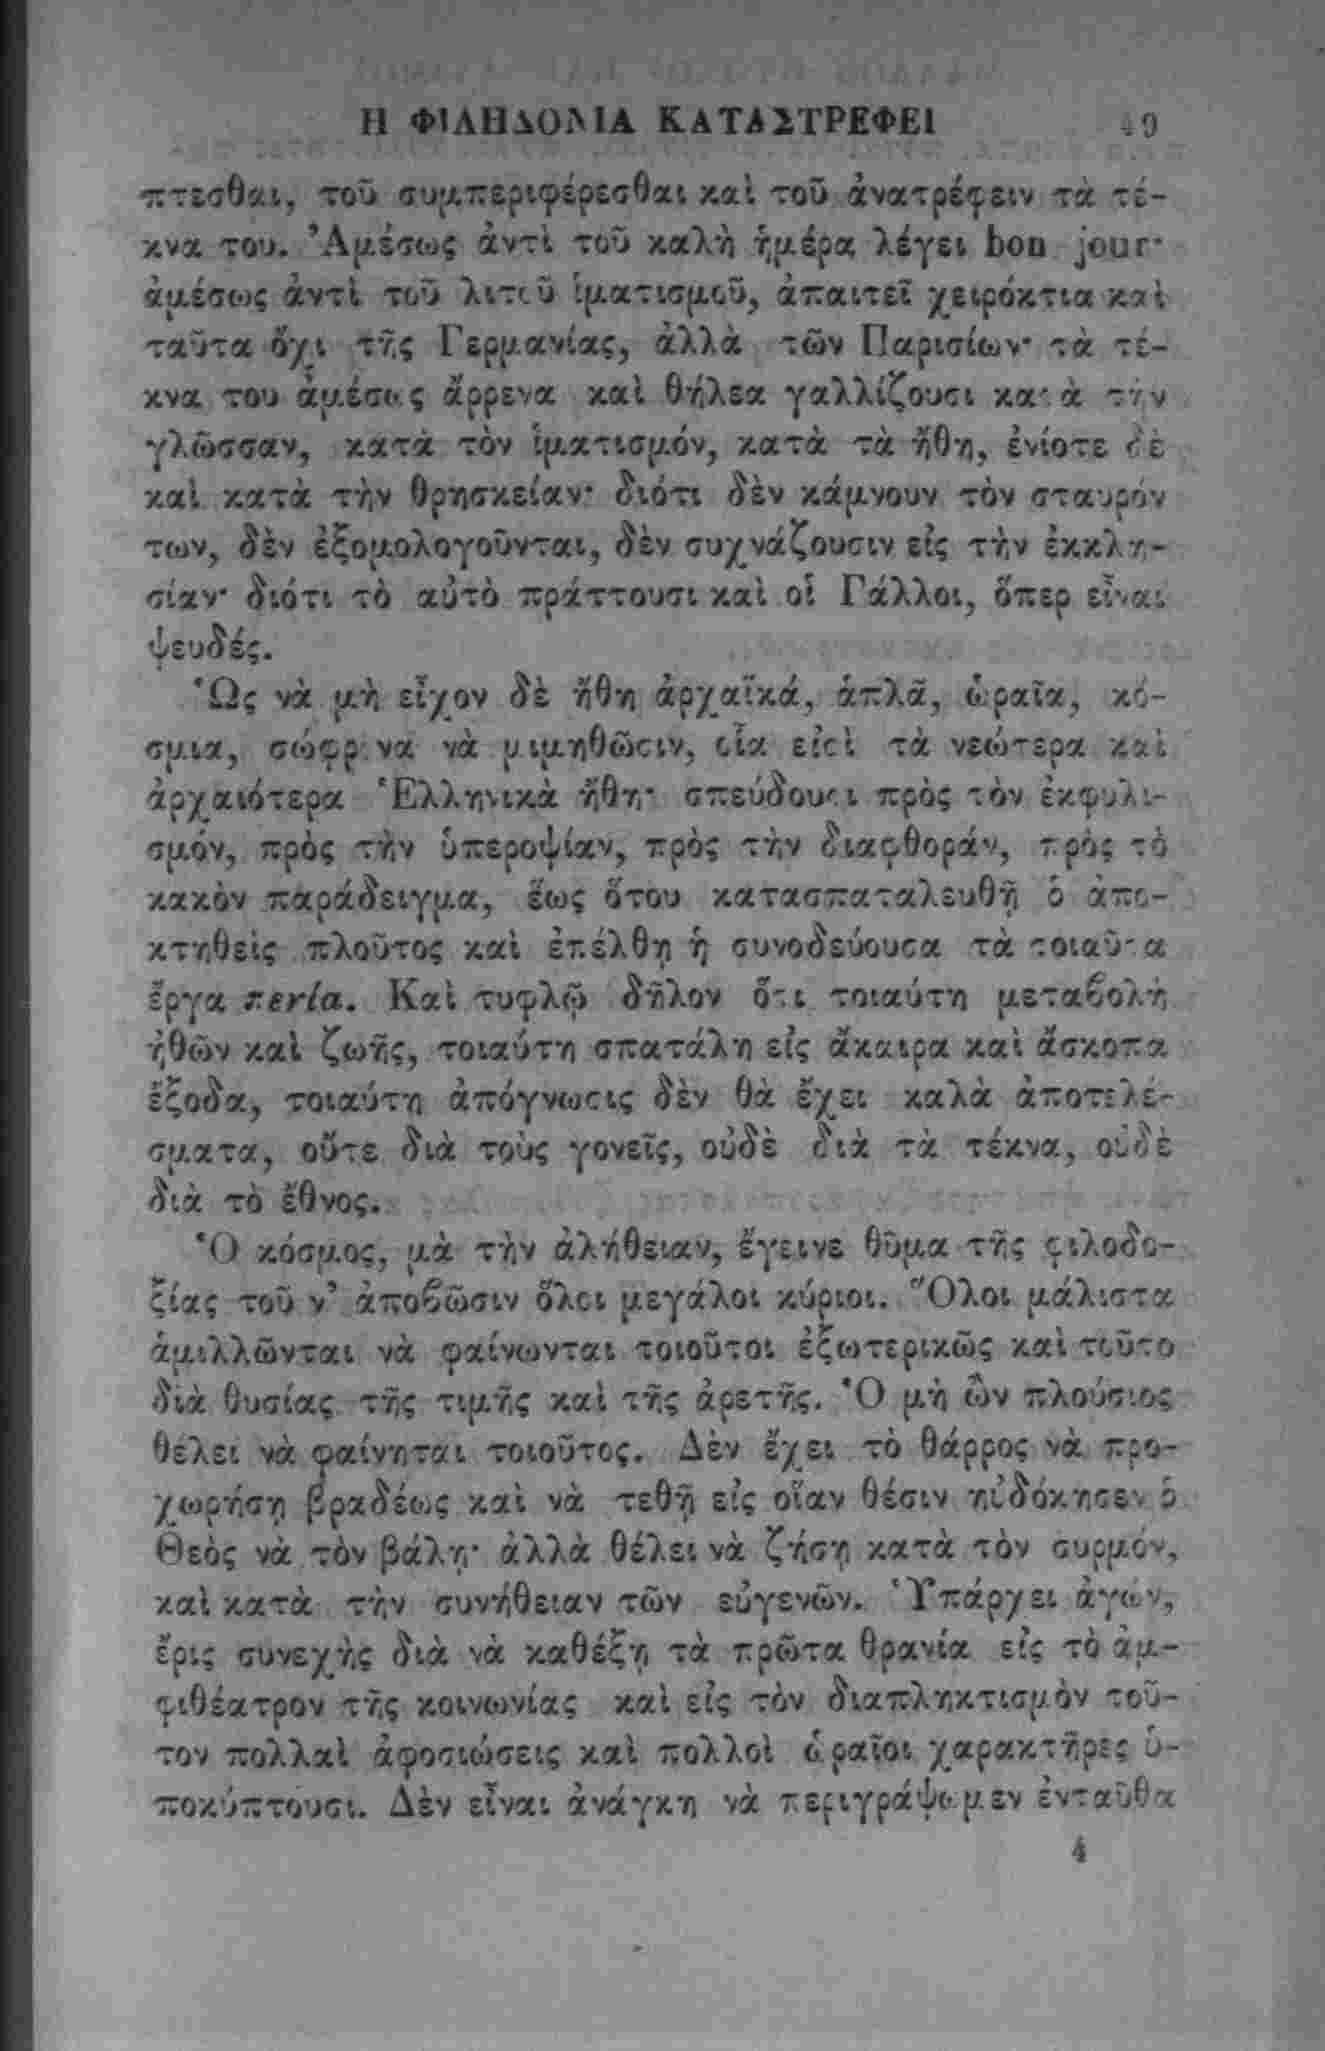 Η ΦΙΛΗΔΟΝΙΑ ΚΑΤΑΣΤΡΕΦΕΙ 49
πτεσθαι, τοῦ συμπεριφέρεσθαι καὶ τοῦ ἀνατρέφειν τὰ τέ-
κνα του. Ἀμέσως ἀντὶ τοῦ καλὴ ἡμέρα λέγει bon jour·
ἀμέσως ἀντὶ τοῦ λιτοῦ ἱματισμοῦ, ἀπαιτεῖ χειρόκτια καὶ
ταῦτα ὄχι τῆς Γερμανίας, ἀλλὰ τῶν Παρισίων· τὰ τέ-
κνα του ἀμέσως ἄρρενα καὶ θήλεα γαλλίζουσι κατὰ τὴν
γλῶσσαν, κατὰ τὸν ἱματισμόν, κατὰ τὰ ἤθη, ἐνίοτε δὲ
καὶ κατὰ τὴν θρησκείαν· διότι δὲν κάμνουν τὸν σταυρόν
των, δὲν ἐξομολογοῦνται, δὲν συχνάζουσιν εἰς τὴν ἐκκλη-
σίαν· διότι τὸ αὐτὸ πράττουσι καὶ οἱ Γάλλοι, ὅπερ εἶναι
ψευδές.
Ὡς νὰ μὴ εἶχον δὲ ἤθη ἀρχαϊκά, ἁπλᾶ, ὡραῖα, κό-
σμια, σώφρονα νὰ μιμηθῶσιν, οἷα εἰσὶ τὰ νεώτερα καὶ
ἀρχαιότερα Ἑλληνικὰ ἤθη· σπεύδουσι πρὸς τὸν ἐκφυλι-
σμόν, πρὸς τὴν ὑπεροψίαν, πρὸς τὴν διαφθοράν, πρὸς τὸ
κακὸν παράδειγμα, ἕως ὅτου κατασπαταλευθῇ ὁ ἀπο-
κτηθεὶς πλοῦτος καὶ ἐπέλθῃ ἡ συνοδεύουσα τὰ τοιαῦτα
ἔργα πενία. Καὶ τυφλῷ δῆλον ὅτι τοιαύτη μεταβολὴ
ἠθῶν καὶ ζωῆς, τοιαύτη σπατάλη εἰς ἄκαιρα καὶ ἄσκοπα
ἔξοδα, τοιαύτη ἀπόγνωσις δὲν θὰ ἔχει καλὰ ἀποτελέ-
σματα, οὔτε διὰ τοὺς γονεῖς, οὐδὲ διὰ τὰ τέκνα, οὐδὲ
διὰ τὸ ἔθνος.
Ὁ κόσμος, μὰ τὴν ἀλήθειαν, ἔγεινε θῦμα τῆς φιλοδο-
ξίας τοῦ ν' ἀποβῶσιν ὅλοι μεγάλοι κύριοι. Ὅλοι μάλιστα
ἁμιλλῶνται νὰ φαίνωνται τοιοῦτοι ἐξωτερικῶς καὶ τοῦτο
διὰ θυσίας τῆς τιμῆς καὶ τῆς ἀρετῆς. Ὁ μὴ ὢν πλούσιος
θέλει νὰ φαίνηται τοιοῦτος. Δὲν ἔχει τὸ θάρρος νὰ προ-
χωρήσῃ βραδέως καὶ νὰ τεθῇ εἰς οἵαν θέσιν ηὐδόκησεν ὁ
Θεὸς νὰ τὸν βάλῃ· ἀλλὰ θέλει νὰ ζήσῃ κατὰ τὸν συρμόν,
καὶ κατὰ τὴν συνήθειαν τῶν εὐγενῶν. Ὑπάρχει ἀγών,
ἔρις συνεχὴς διὰ νὰ καθέξῃ τὰ πρῶτα θρανία εἰς τὸ ἀμ-
φιθέατρον τῆς κοινωνίας καὶ εἰς τὸν διαπληκτισμὸν τοῦ-
τον πολλαὶ ἀφοσιώσεις καὶ πολλοὶ ὡραῖοι χαρακτῆρες ὑ-
ποκύπτουσι. Δὲν εἶναι ἀνάγκη νὰ περιγράψωμεν ἐνταῦθα
4